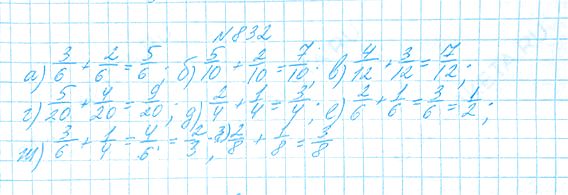 №832
а) 3/6 + 2/6 = 5/6; б) 5/10 + 2/10 = 7/10; в) 4/12 + 3/12 = 7/12;
г) 5/20 + 4/20 = 9/20; д) 2/4 + 1/4 = 3/4; е) 2/6 + 1/6 = 3/6 = 1/2;
ж) 3/6 + 1/4 = 4/6 = 2/3; з) 2/8 + 1/8 = 3/8